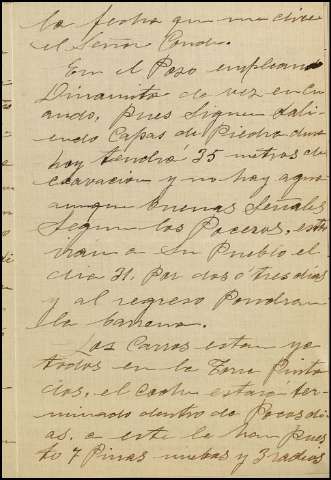 la fecha que me dice
el Señor Conde.
En el Pozo empleando
Dinamita de vez en cu
ando, pues siguen sali
endo Capas de Piedra dura
hoy tendrá 35 metros de
excavacion y no hay agua
aunque buenas Señales
Segun los Poceros, estos
van a Su Pueblo el
dia 31. Por dos ó tres dias
y al regreso Pondran
la barrena.
Los Carros estan ya
todos en la Torre Pinta
dos, el coche estará ter-
minado dentro de Pocos di
as. a este le han pues
to 7 Pinas nuebas y 3 radios